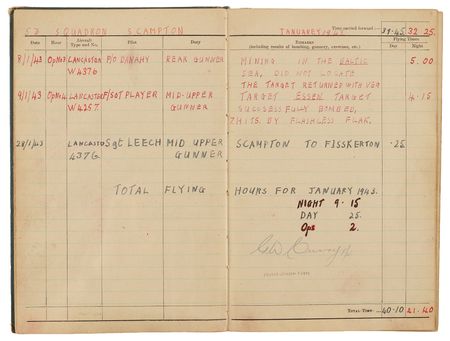 57 SQUADRON SCAMPTON
JANUAREY 1943
Time carried forward :— 39.45 32.25
Date Hour Aircraft Type and No. Pilot Duty REMARKS (including results of bombing, gunnery, exercises, etc.) Flying Times Day Night
8/1/43 OpNo3 LANCASTER P/O DANAHY REAR GUNNER MINING IN THE BALTIC 5.00
W4376 SEA. DID NOT LOCATE
THE TARGET RETURNED WITH VEG
9/1/43 OpNo4 LANCASTER F/SGT PLAYER MID-UPPER TARGET ESSEN TARGET 4.15
W4257 GUNNER SUCCESSFULLY BOMBED,
7 HITS BY FLASHLESS FLAK.
28/1/43 LANCASTER Sgt LEECH MID UPPER SCAMPTON TO FISSKERTON .25
437G GUNNER
TOTAL FLYING HOURS FOR JANUARY 1943.
NIGHT 9.15
DAY 25.
Ops 2.
TOTAL TIME 40.10 41.40